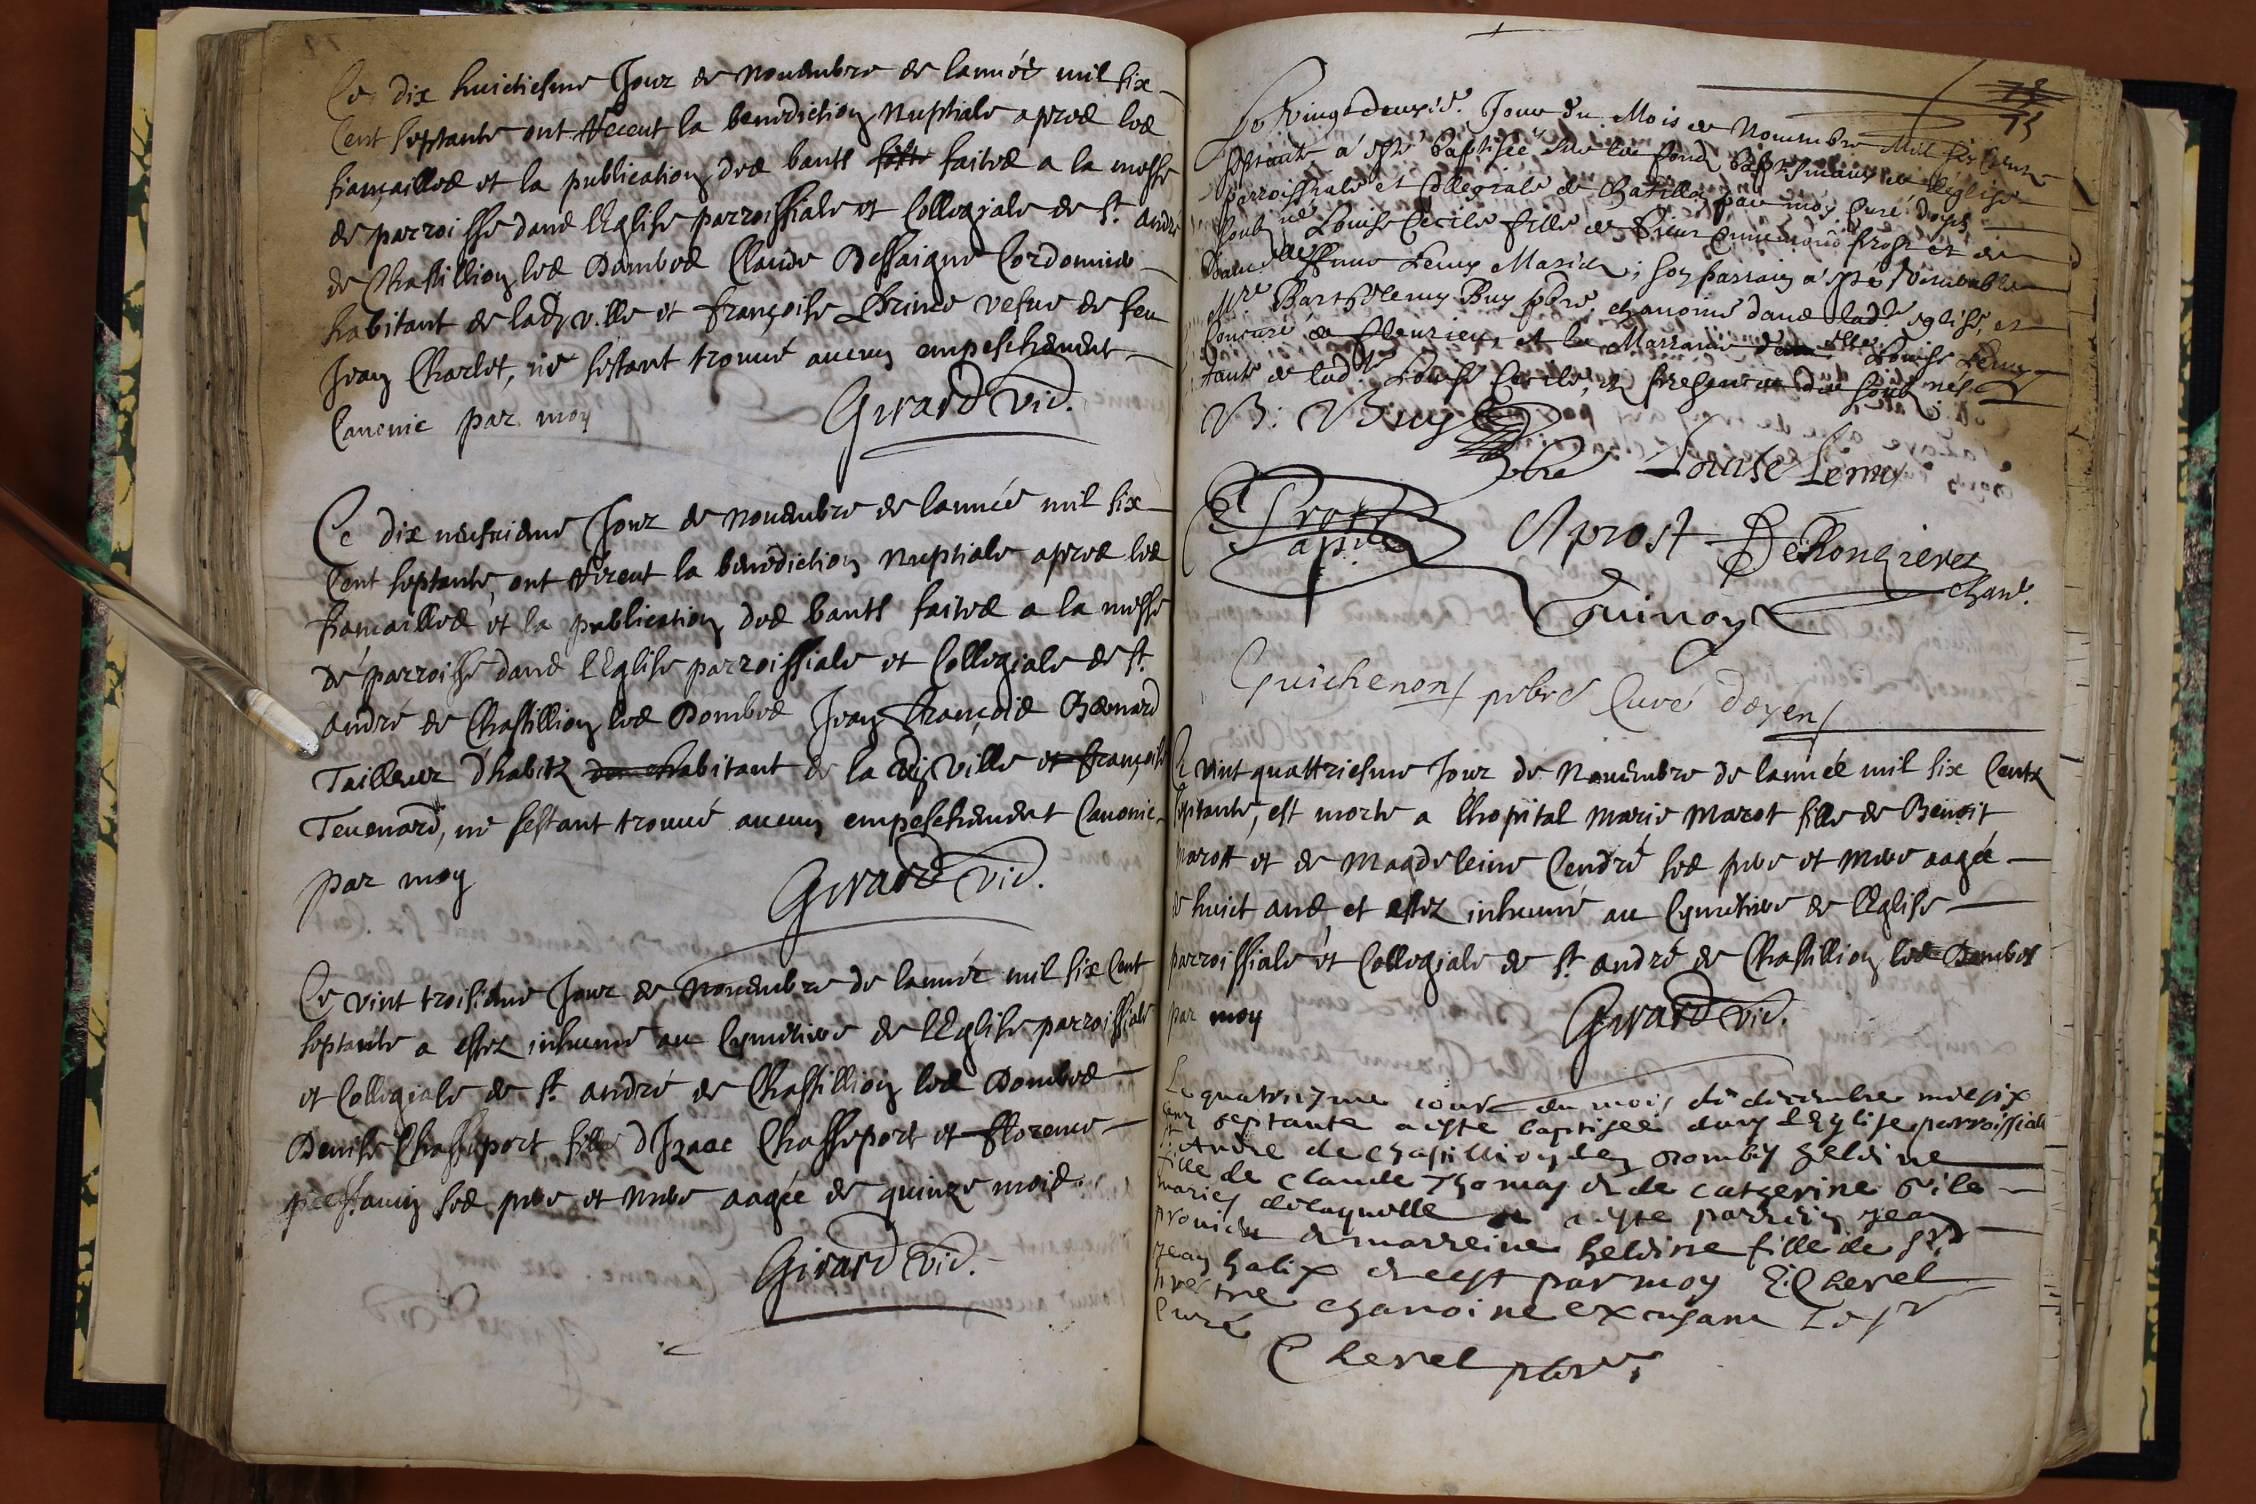 Ce dix huictiesme Jour de nouembre de lannéé mil six
Cent septante ont Receut la benediction Nuptiale apres les
fiançailles et la publication des bants faites a la messe
de parroisse dans lEglise parroissiale et Collegiale de St. André
de Chastillion les Dombes Claude Dessaigne Cordonnie
habitant de lad. ville et françoise Prince vefue de feu
Jean Charlet, ne sestant trouué aucun empeschement
Canonic par moy Girard vic.
Ce dix neufuieme Jour de nouembre de lannéé mil six
Cent septante, ont Receut la benediction Nuptiale apres les
fiançailles et la publication des bants faites a la messe
de parroisse dans lEglise parroissiale et Collegiale de St.
André de Chastillion les Dombes Jean François Bernard
Tailleur dhabitz habitant de la ville et françoise
Teuenard, ne sestant trouué aucun empeschement Canonic
par moy Girard vic.
Ce vint troisieme Jour de Nouembre de lanneé mil six Cent
septante a estez inhumé au Cymetiere de lEglise parroissiale
et Collegiale de St. André de Chastillion les Dombes
Denise Chasseport fille dIzaac Chasseport et florence
ses pere et mere aagée de quinze mois
Girard vic.
75
Le vingt deuxie. Jour du Mois de Nouembre Mil six Cent
septante a esté baptiseé sur les fonds baptismaux de l'église
parroissiale et Collegiale de Chatillon par moy Curé doyen
soub né Louise Cecile fille de Sieur prost et de
Dame Lemy Mariés; son parrain a esté Venerable
Mre Barthelemy Buy pbre. chanoine dans lad. eglise, et
de fleurieu, et la Marraine Louise Lemy
tante de lad. Louise Cecile, en presence des soub nés
B: Buy pbre Louise Lemy
Prost A prost DeRongieres chan.
Guinoy
Guichenon pebre Curé doyen
Ce vint quattriesme Jour de Nouembre de lanneé mil six Centz
septante, est morte a lhopital Marie Marot fille de Benoit
Marott et de Magdeleine Cendré ses pere et mere aagée
de huict ans et estez inhumé au Cymetiere de lEglise
parroissiale et Collegiale de St. André de Chastillion les Dombes
par moy Girard vic.
Le quatriyme iour du mois de decembre mil six
cent septante a este baptiseé dans lEglise parroissiale
St Andre de Chastillion les Dombes heleine
fille de claude Thomas et de catherine
maries de laquelle a este parrein jean
et marreine heleine fille de Sr
jean et est par moy C Chevel
prétre chanoine excusant le Sr
Curé
Chevel pbre